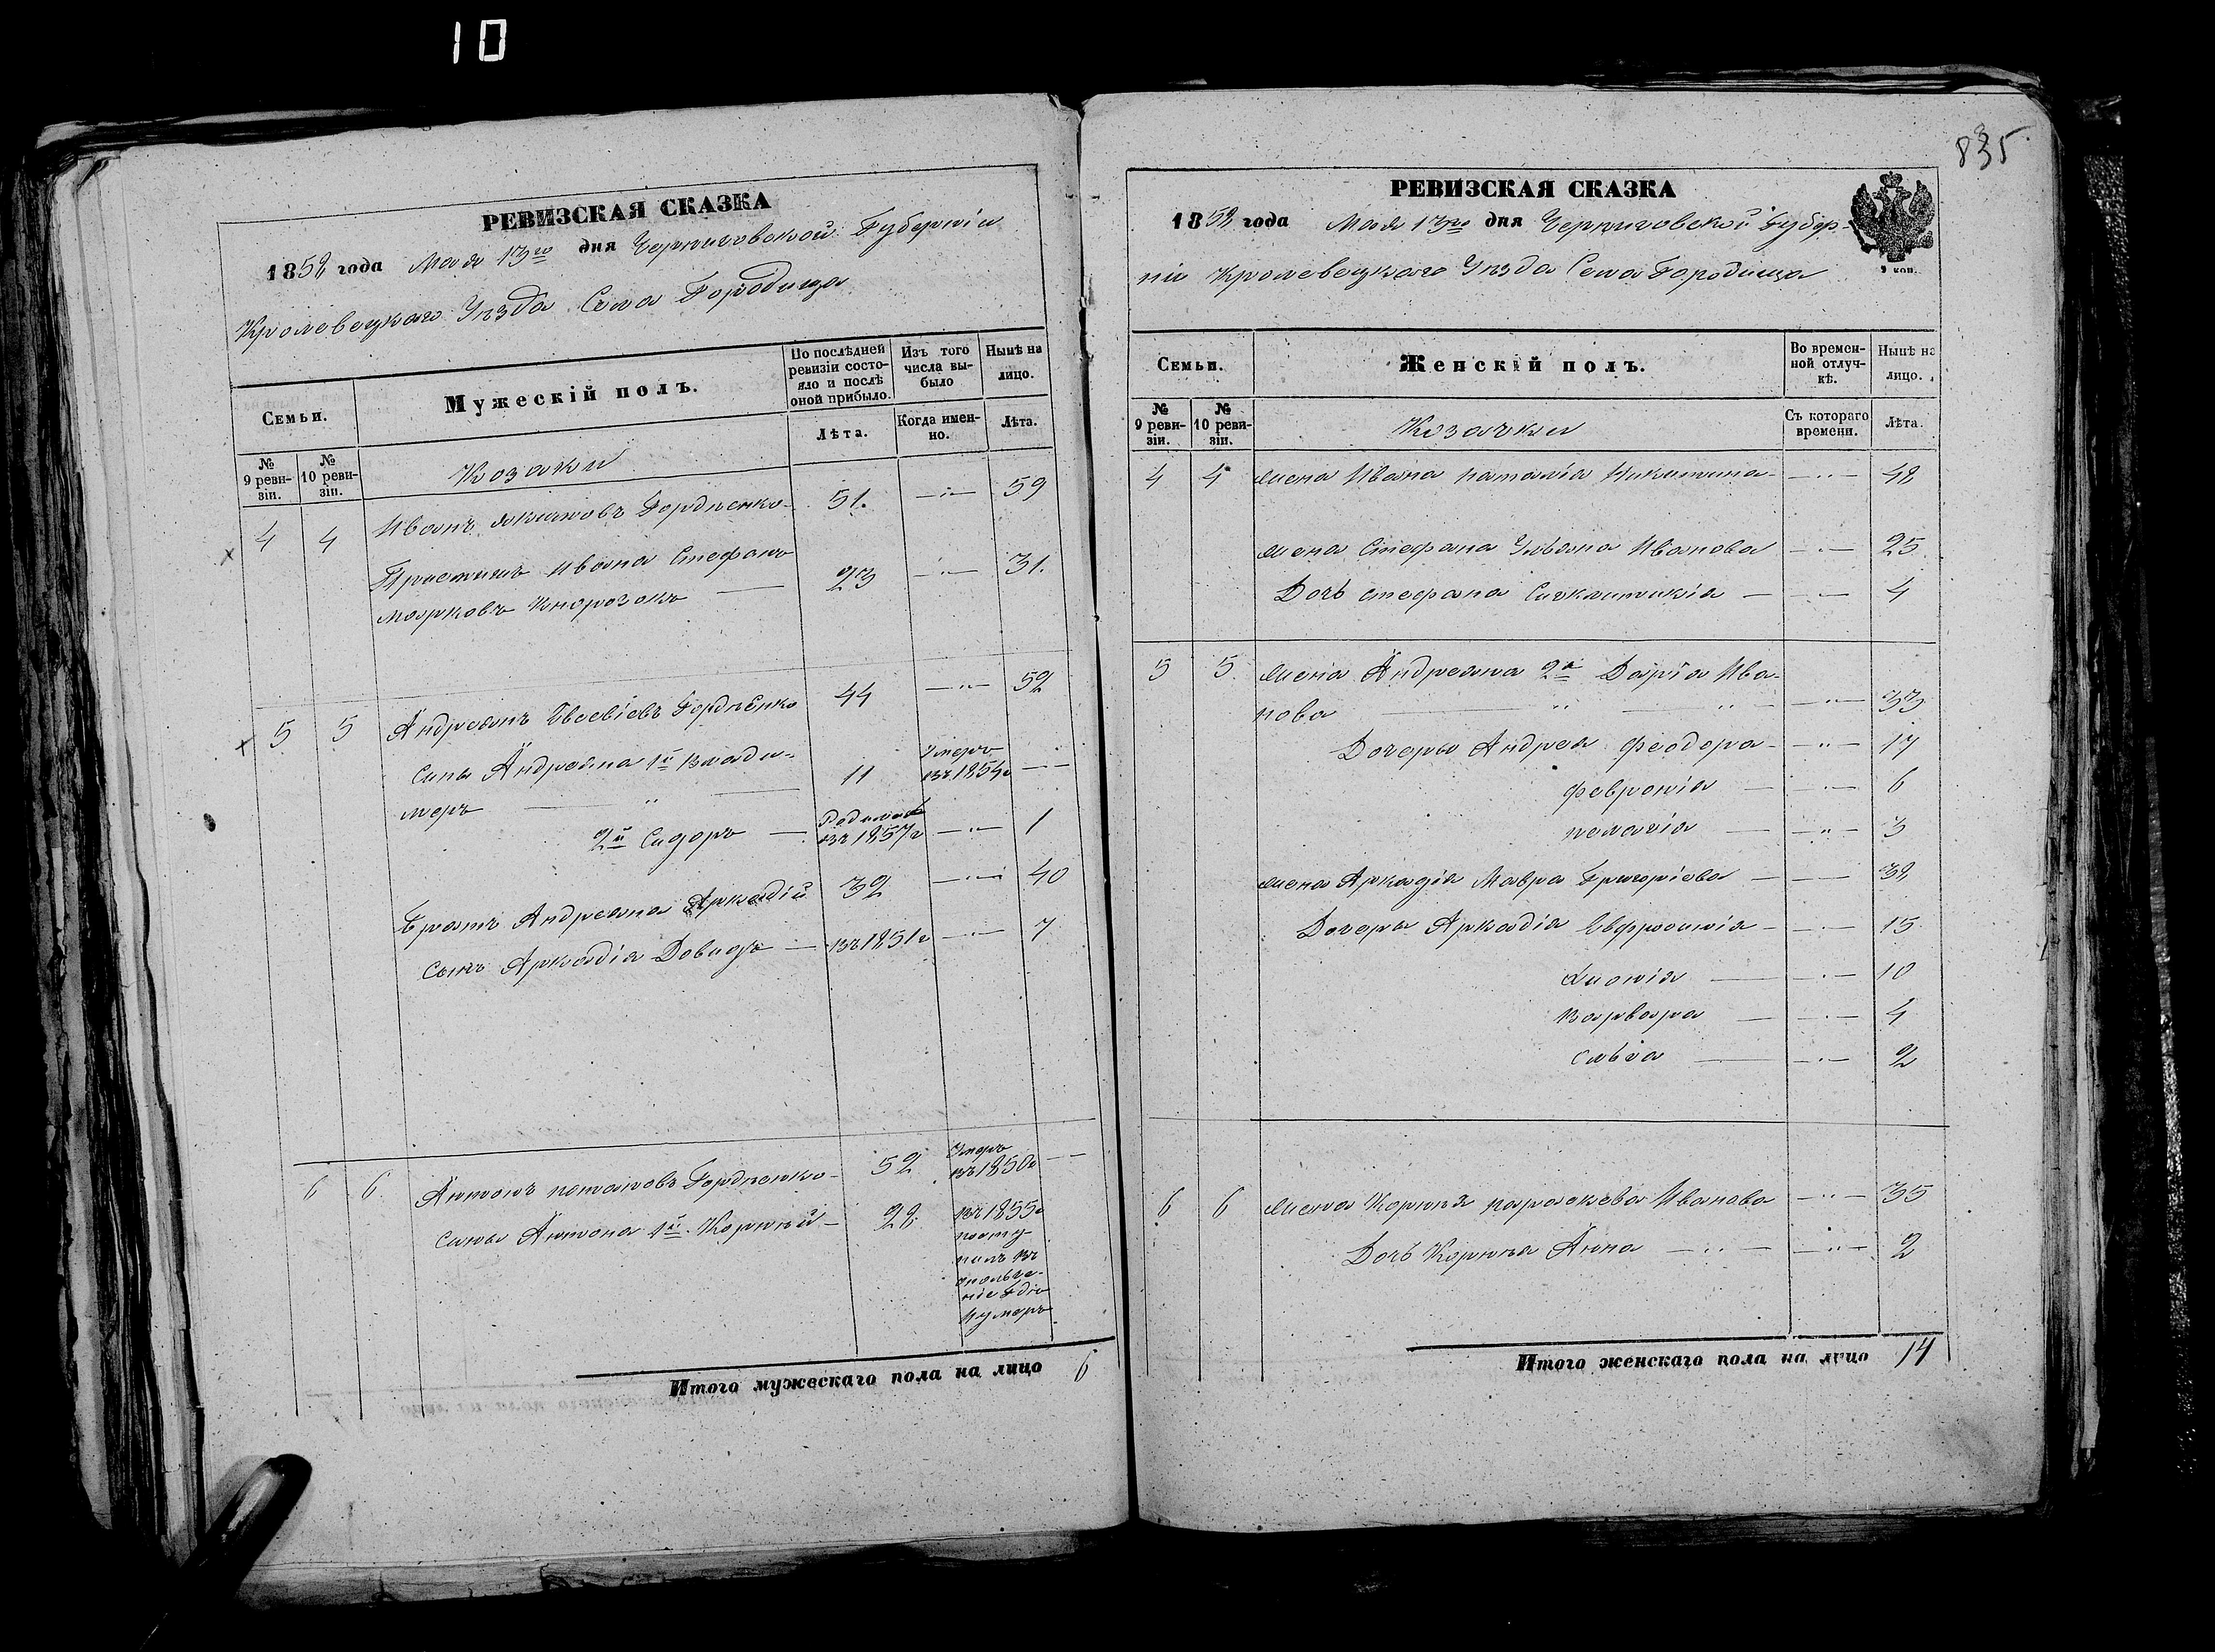 10
835
РЕВИЗСКАЯ СКАЗКА
1858 года Мая 13го дня Черниговской Губерніи
Кролевецкаго Уѣзда Села Городища
Семьи.
Мужескій полъ.
По послѣдней ревизіи состояло и послѣ оной прибыло.
Изъ того числа выбыло
Нынѣ на лицо.
№ 9 ревизіи.
№ 10 ревизіи.
Козаки
Лѣта.
Когда именно.
Лѣта.
4 4 Иванъ Якимовъ Гордѣенко 51. 59
Приемышъ Ивана Стефанъ
Марковъ Кнорозокъ 23 31.
5 5 Андреянъ Евсевіевъ Гордѣенко 44 52
Сыны Андреяна 1й Влади-
меръ 11 Умеръ въ 1854г
2й Сидоръ Родился въ 1857г 1
Братъ Андреяна Аркадій 32 40
Сынъ Аркадія Давидъ въ 1851г 7
6 6 Антонъ Потаповъ Гордѣенко 52 Умеръ въ 1850г
Сыны Антона 1й Корнѣй 28. въ 1855г
посту-
пилъ въ
ополче-
ніе гдѣ
и умеръ
Итого мужескаго пола на лицо 6
РЕВИЗСКАЯ СКАЗКА
1858 года Мая 13го дня Черниговской Губер-
ніи Кролевецкаго Уѣзда Села Городища
Семьи.
Женскій полъ.
Во временной отлучкѣ.
Нынѣ на лицо.
№ 9 ревизіи.
№ 10 ревизіи.
Козачки
Съ котораго времени.
Лѣта.
4 4 Жена Ивана Наталія Никитина 48
Жена Стефана Ульяна Иванова 25
Дочь Стефана Сигклитикія 4
5 5. Жена Андреяна 2я Дарія Ива-
нова 33
Дочеры Андрея Феодора 17
Февронія 6
Пелагія 3
Жена Аркадія Мавра Григоріева 38
Дочеры Аркадія Ефросинія 15
Хионія 10
Варвара 4
2
6 6 Жена Корнѣя Параскева Иванова 35
Дочь Корнѣя Анна 2
Итого женскаго пола на лицо 14